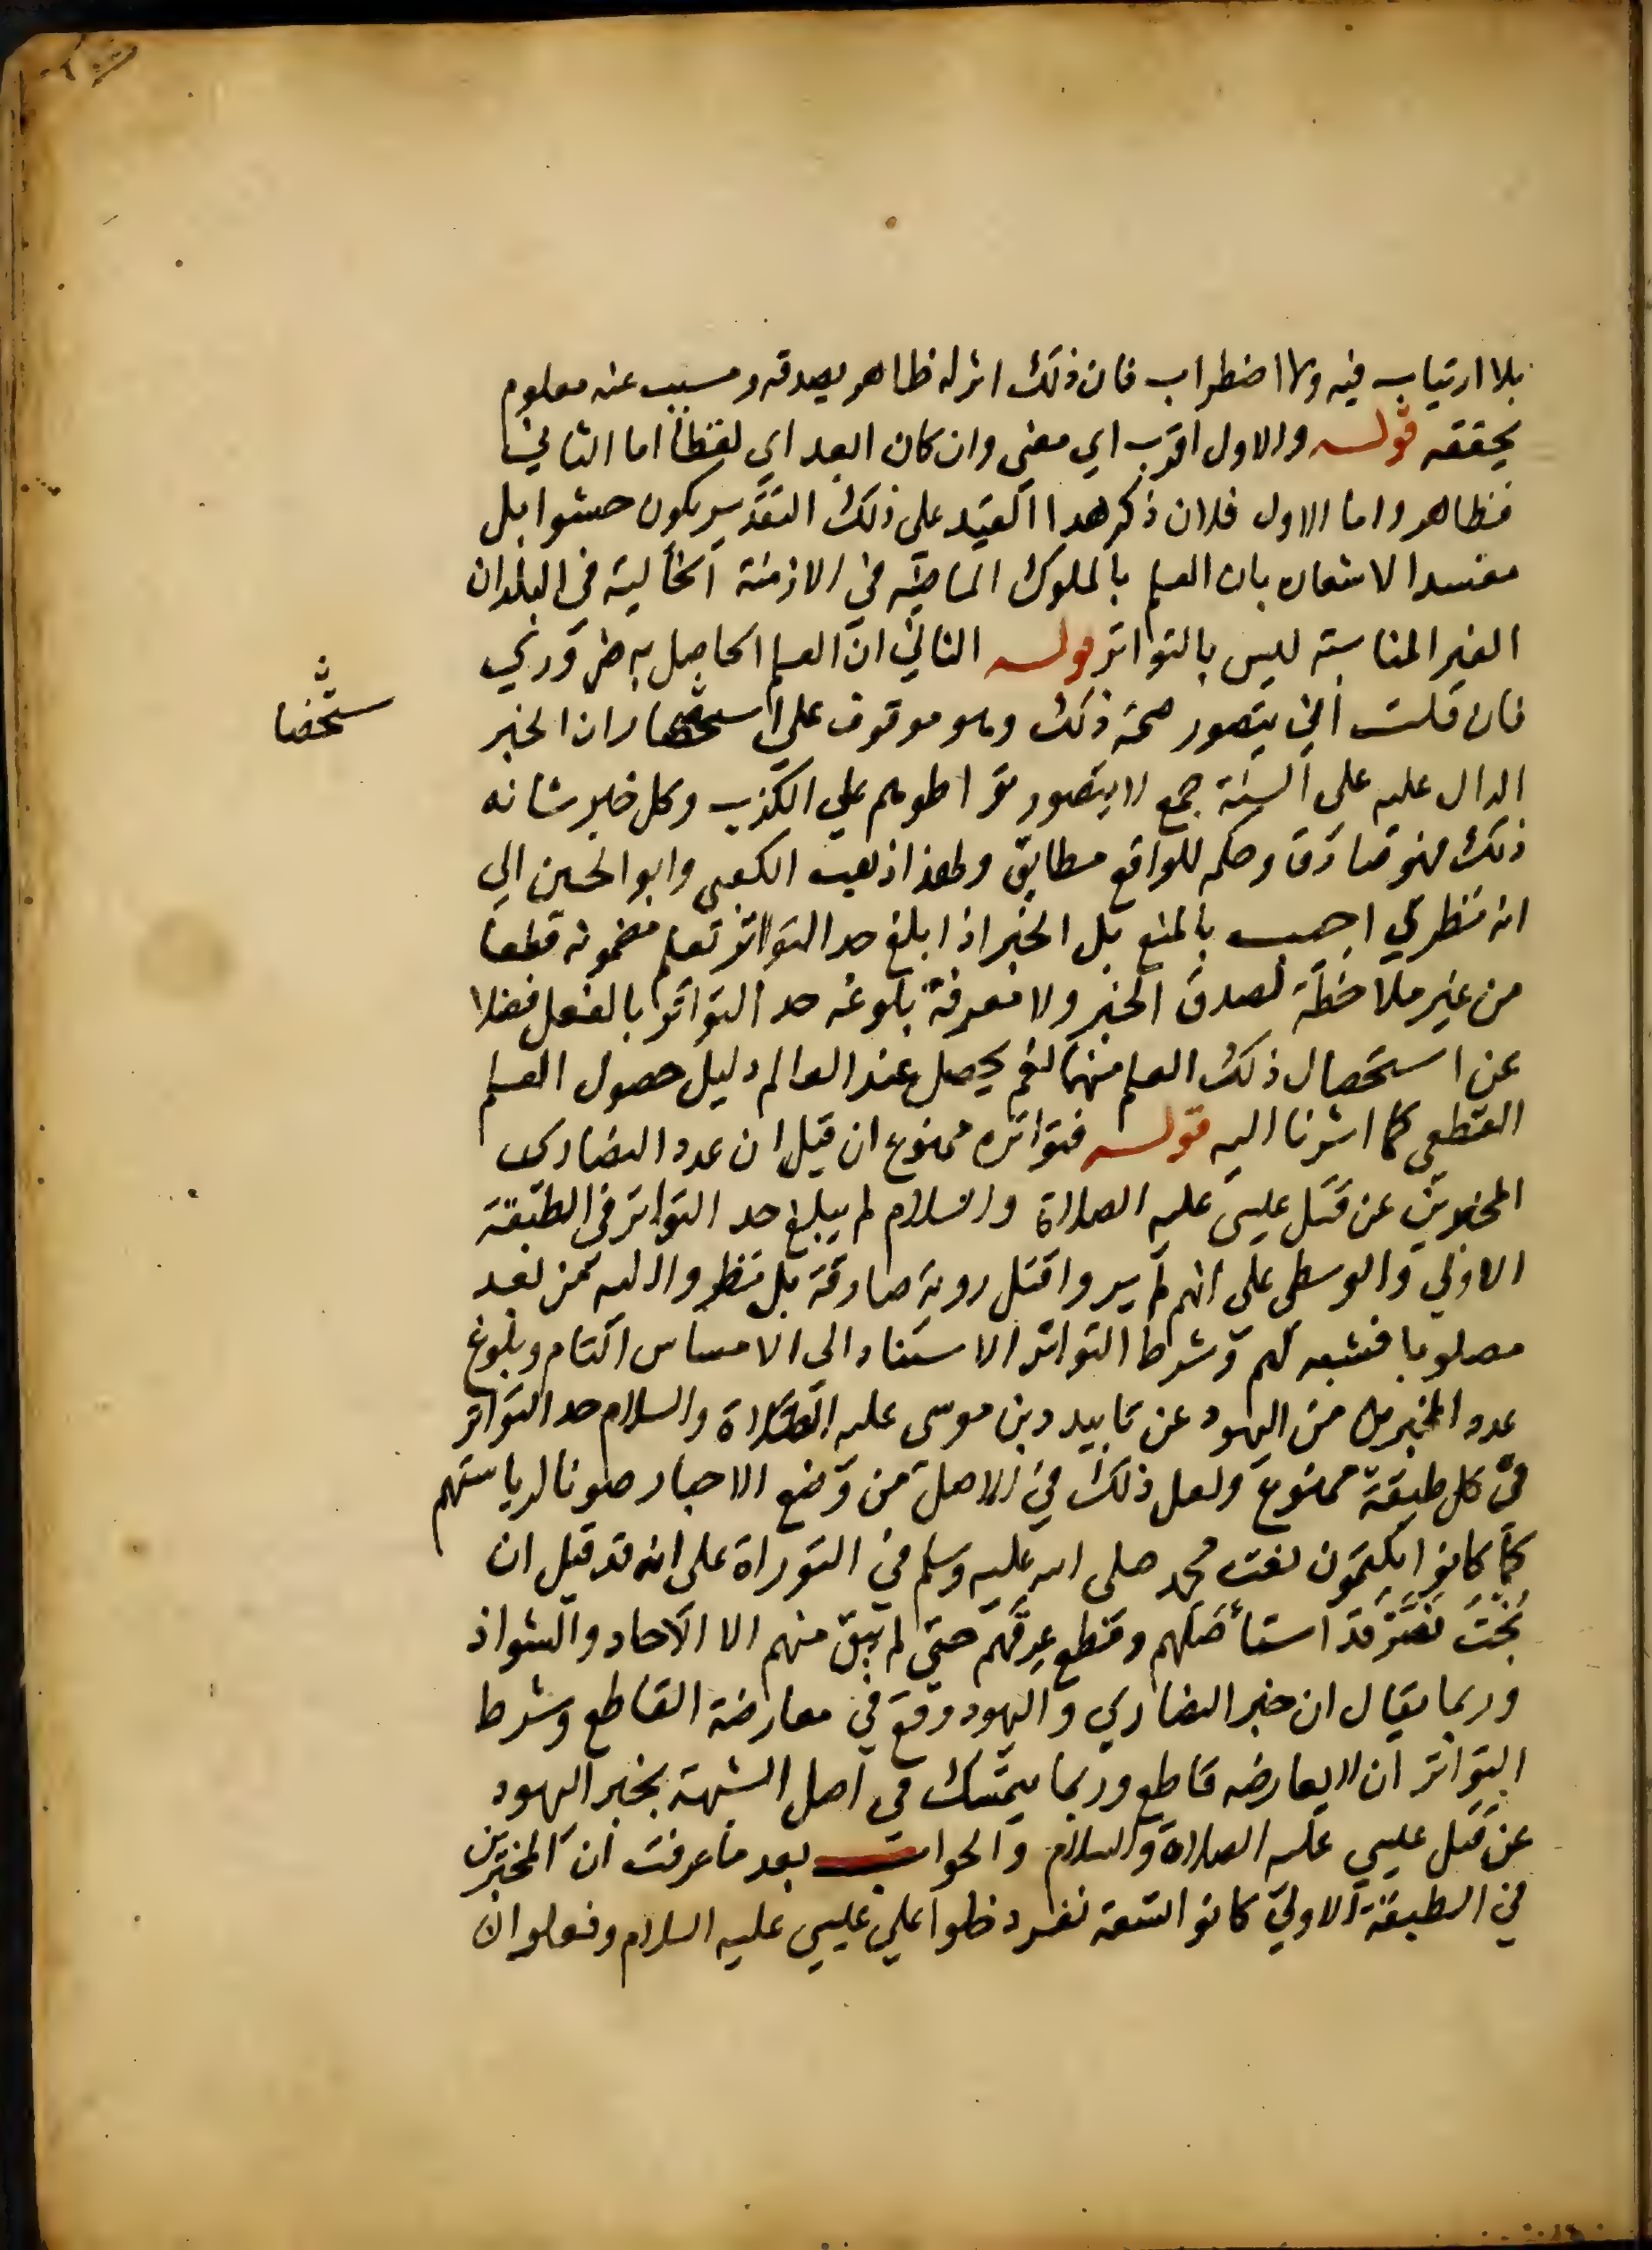 بلا ارتياب فيه ولا اضطراب فان ذلك اثر له ظاهر يصدقه ومسبب عنه معلوم
يحققه قوله والاول اقرب اي معني وان كان ابعد اي لفظا اما الثاني
فظاهر واما الاول فلان ذكر هذا القيد علي ذلك التقدير يكون حشوا بل
مفسدا لاشعاره بان العلم بالملوك الماضية في الازمنة الخالية في البلدان
الغير المناسبة ليس بالتواتر قوله الثاني ان العلم الحاصل به ضروري
فان قلت اني يتصور صحة ذلك وهو موقوف علي استحضار ان الخبر
ستحضا
الدال عليه علي السنة جمع لا يتصور تواطوهم علي الكذب وكل خبر شانه
ذلك فهو صادق وحكمه للواقع مطابق ولهذا ذهب الكعبي وابو الحسين الي
انه نظري اجيب بالمنع بل الخبر اذا بلغ حد التواتر تعلم مضمونه قطعا
من غير ملاحظة لصدق الخبر ولا معرفة بلوغه حد التواتر بالفعل فضلا
عن استحصال ذلك العلم منهما نعم يحصل عند العالم دليل حصول العلم
القطعي كما اشرنا اليه قوله فتواتره ممنوع ان قيل ان عدد النصاري
المخبرين عن قتل عيسي عليه الصلاة والسلام لم يبلغ حد التواتر في الطبقة
الاولي والوسطي علي انهم لم يروا قتل روية صادقة بل نظروا اليه من بعد
مصلوبا فشبه لهم وشرط التواتر الاستناد الي الاحساس التام وبلوغ
عدد المخبرين من اليهود عن تابيد دين موسي عليه الصلاة والسلام حد التواتر
في كل طبقة ممنوع ولعل ذلك في الاصل من وضع الاحبار صونا لرياستهم
كما كانوا يكتمون نعت محمد صلى الله عليه وسلم في التوراة علي انه قد قيل ان
بُخْتَ نَصَّرْ قد استأصلهم وقطع عِرقَهم حتي لم يبق منهم الا الآحاد والشواذ
وربما يقال ان خبر النصاري واليهود وقع في معارضة القاطع وشرط
التواتر ان لا يعارضه قاطع وربما يتمسك في اصل الشبهة بخبر اليهود
عن قتل عيسي عليه الصلاة والسلام والجواب بعد ما عرفت ان المخبرين
في الطبقة الاولي كانوا تسعة نفر دخلوا علي عيسي عليه السلام وفعلوا ان